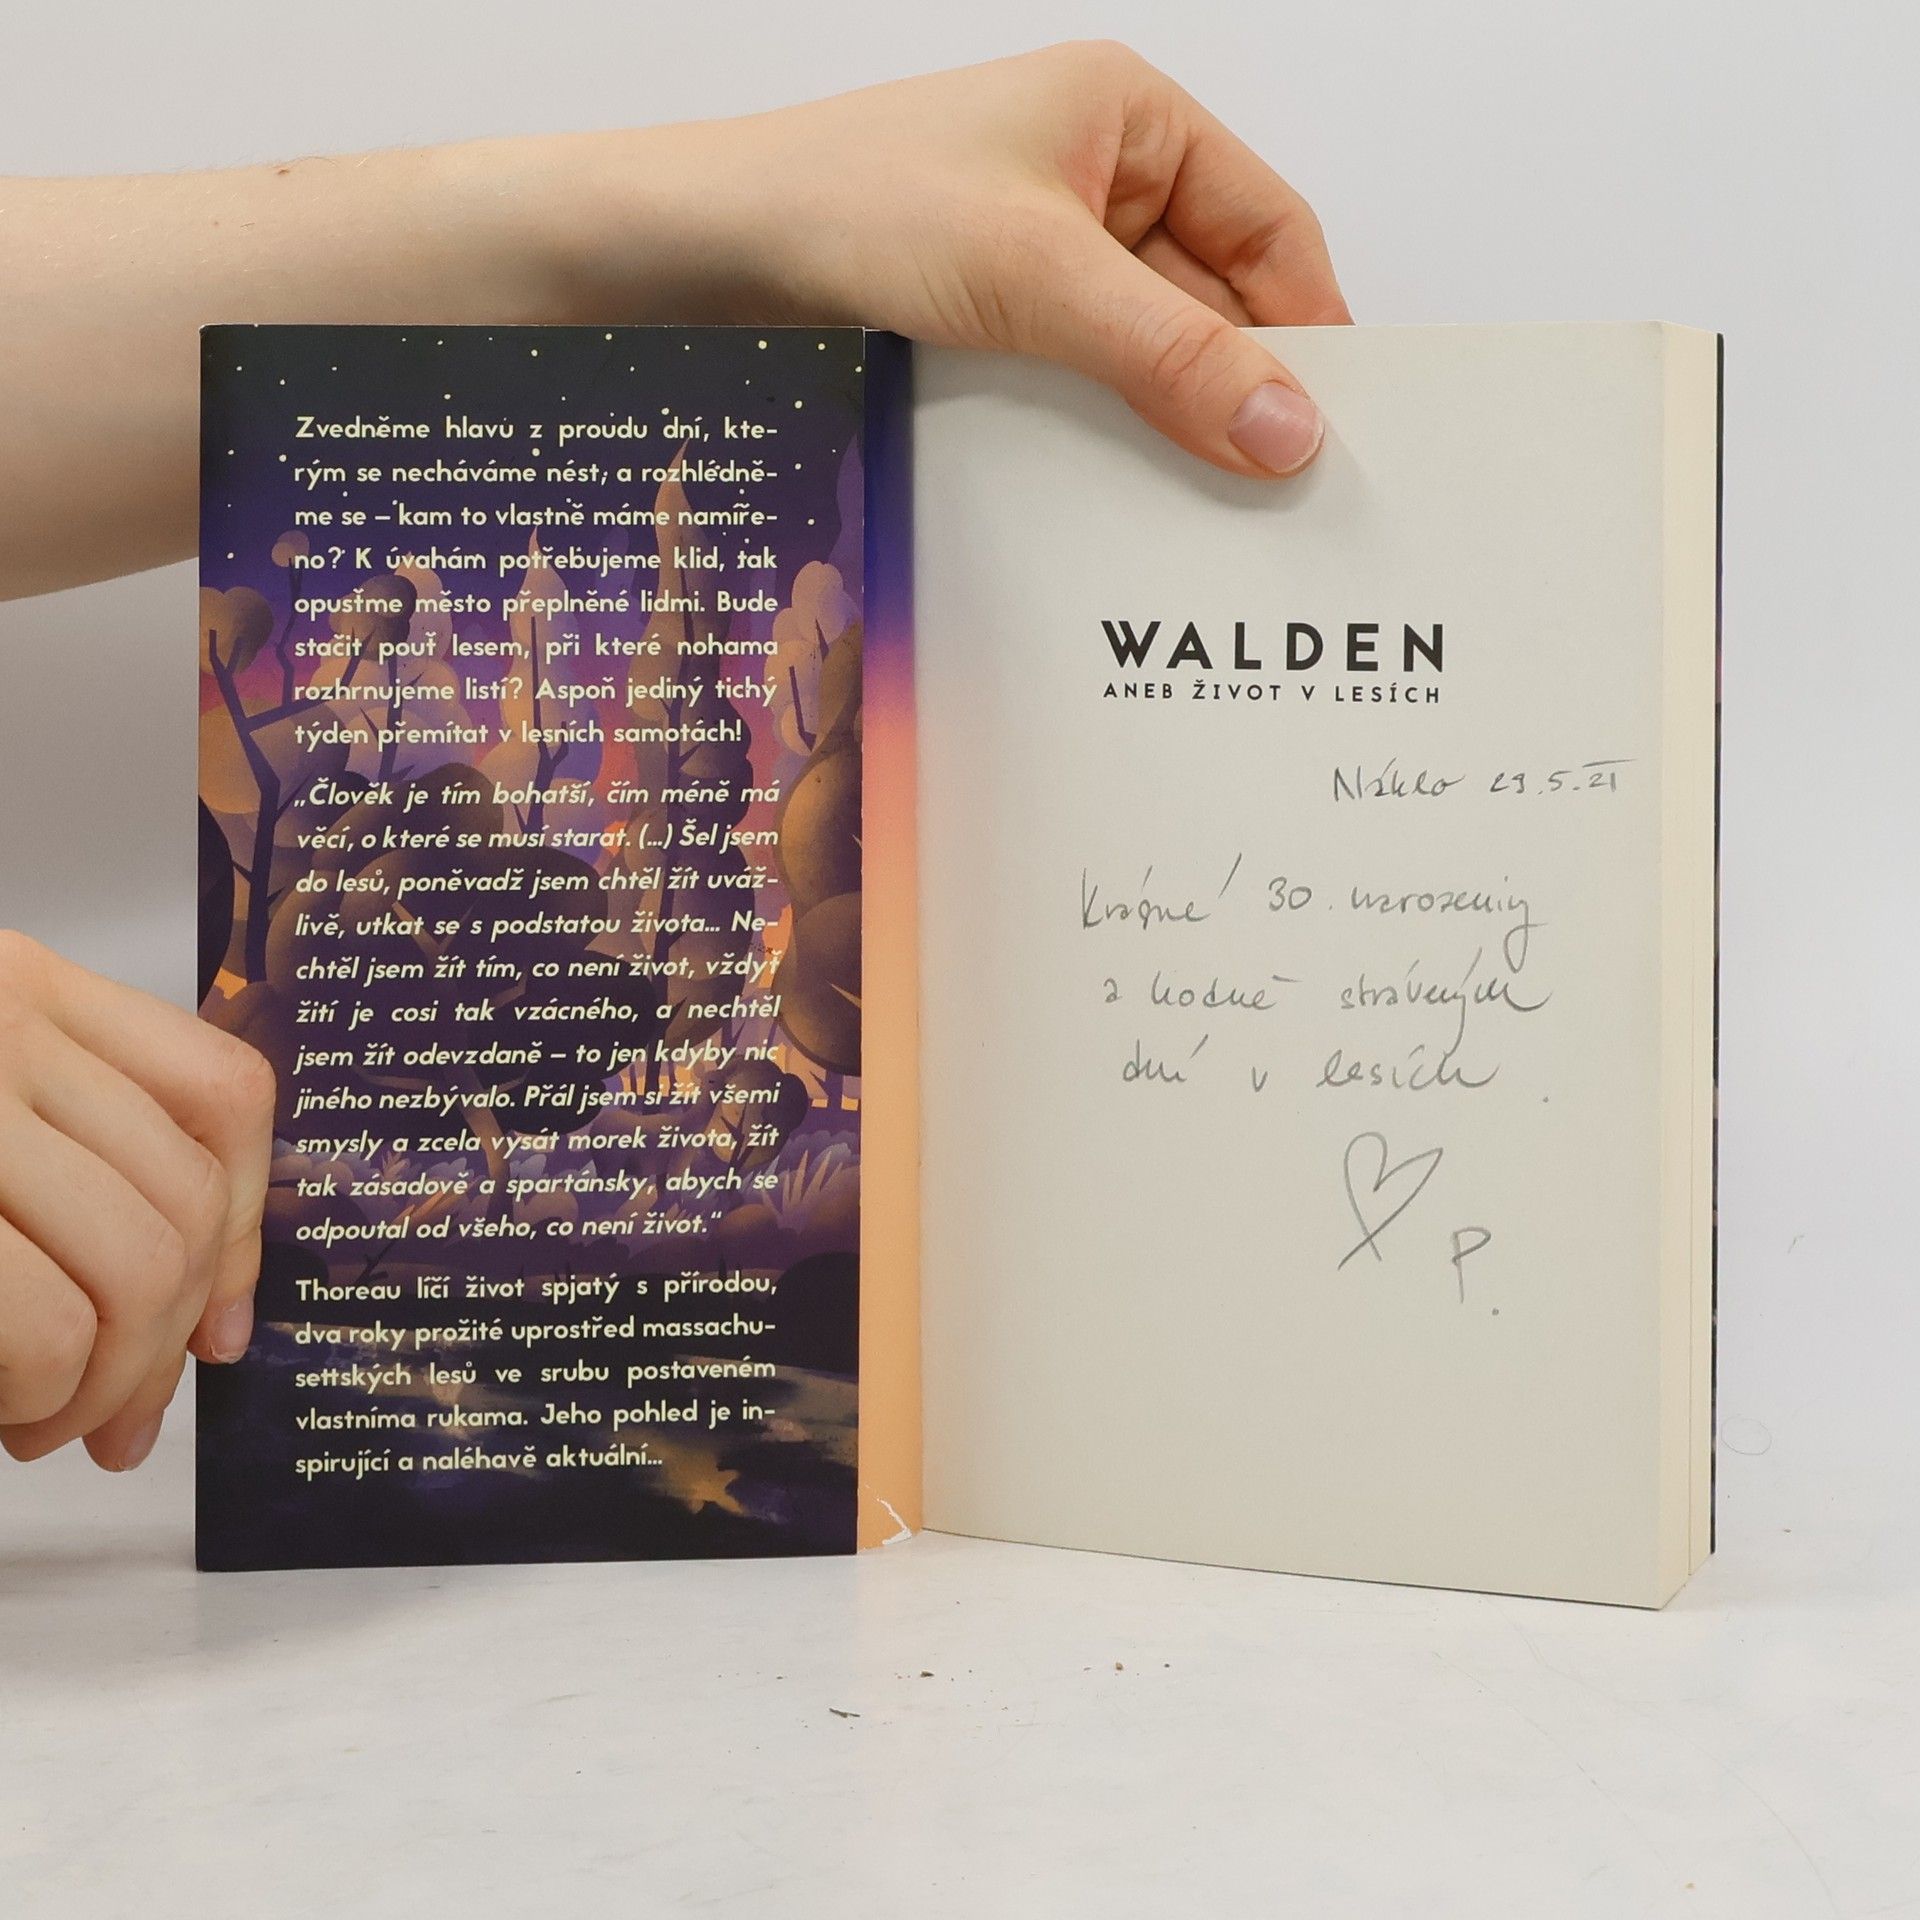 Zvedněme hlavu z proudu dní, kte-
rým se necháváme nést, a rozhlédně-
me se – kam to vlastně máme namíře-
no? K úvahám potřebujeme klid, tak
opusťme město přeplněné lidmi. Bude
stačit pouť lesem, při které nohama
rozhrnujeme listí? Aspoň jediný tichý
týden přemítat v lesních samotách!
„Člověk je tím bohatší, čím méně má
věcí, o které se musí starat. (...) Šel jsem
do lesů, poněvadž jsem chtěl žít uváž-
livě, utkat se s podstatou života... Ne-
chtěl jsem žít tím, co není život, vždyť
žití je cosi tak vzácného, a nechtěl
jsem žít odevzdaně – to jen kdyby nic
jiného nezbývalo. Přál jsem si žít všemi
smysly a zcela vysát morek života, žít
tak zásadově a spartánsky, abych se
odpoutal od všeho, co není život.“
Thoreau líčí život spjatý s přírodou,
dva roky prožité uprostřed massachu-
settských lesů ve srubu postaveném
vlastníma rukama. Jeho pohled je in-
spirující a naléhavě aktuální...
WALDEN
ANEB ŽIVOT V LESÍCH
Náklo 29.5.21
Krásné 30. narozeniny
a hodně strávených
dní v lesích.
P.